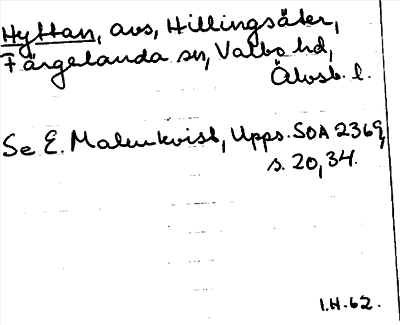 Hyttan, avs, Hillingsäter,
Färgelanda sn, Valbo hd,
Älvsb. l.
Se E. Malmkvist, Upps. SOA 2369,
s. 20, 34.
I.H. 62.